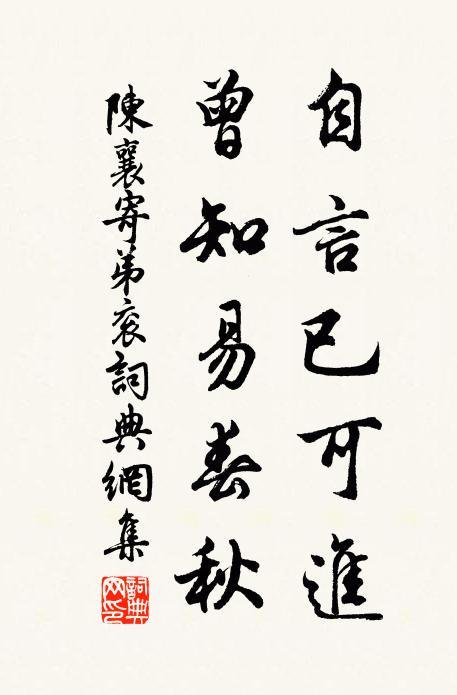 自言已可進
曾知易春秋
陳襄寄弟衮詞典網集
詞典網印